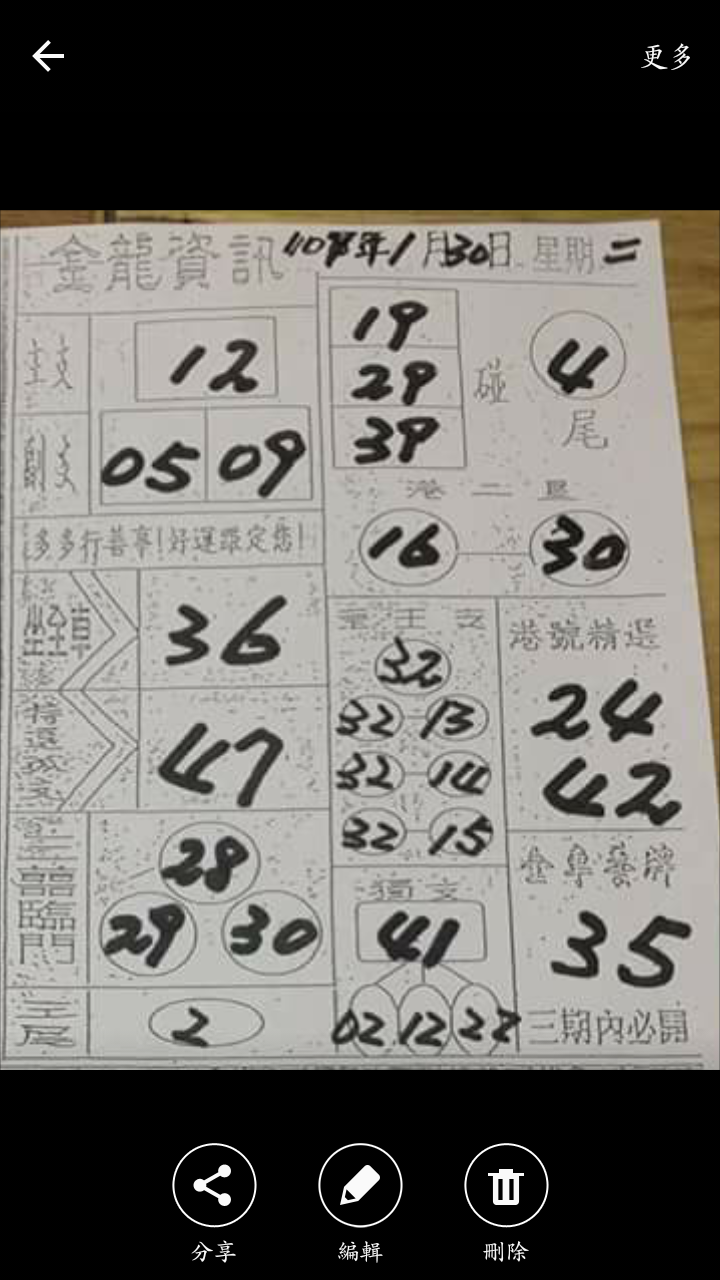 更多
金龍資訊 107年1月30日 星期二
主支 12
副支 05 09
多多行善事!好運跟定您!
36
特選孤支 47
28
29 30
囍臨門
2
19
29 碰 4
39 尾
港二星
16 30
32
32 13
32 14
32 15
獨支
41
02 12 22
港號精選
24
42
35
三期內必開
分享 編輯 刪除